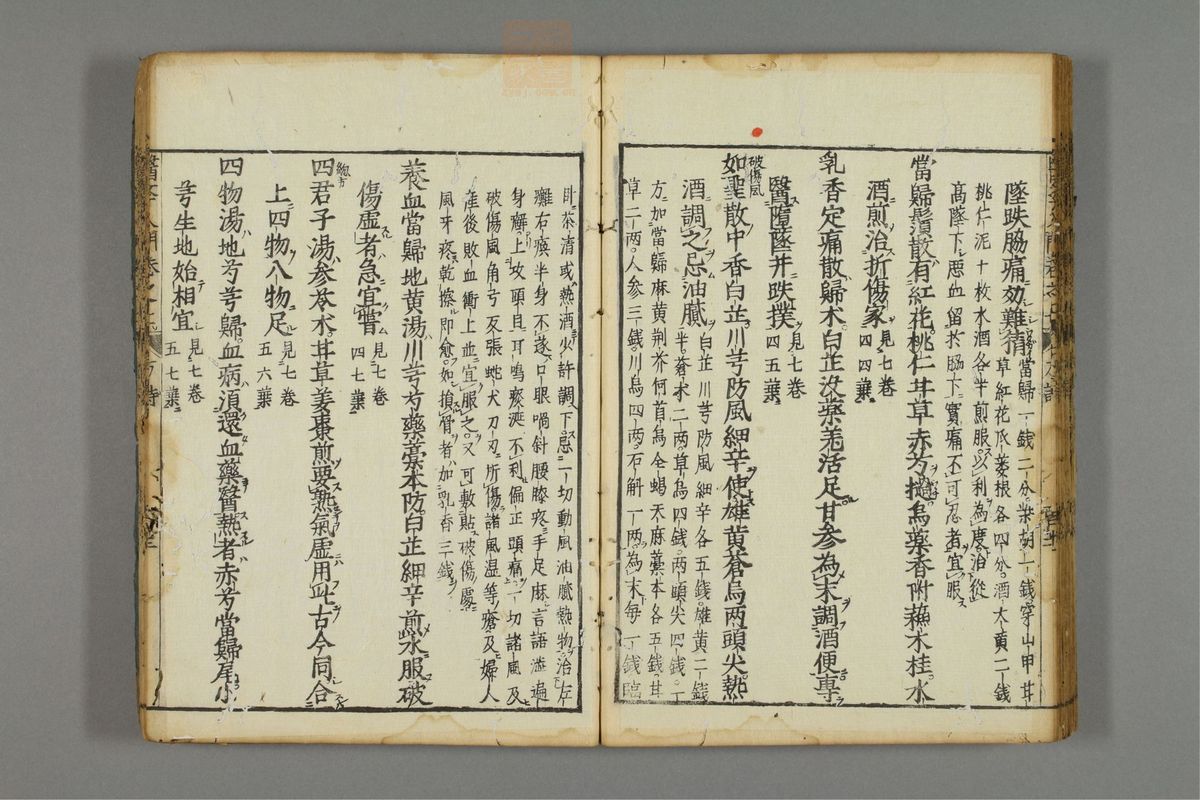 墜跌脇痛効難猜 當歸一錢二分柴胡一錢穿山甲甘
草紅花瓜蔞根各四分酒大黄二錢
桃仁泥十枚水酒各半煎服以利為度治從
高墜下惡血留於脇下實痛不可忍者宜服
當歸鬚散有紅花桃仁甘草赤芍搥烏藥香附蘇木桂水
酒煎治折傷家 見七巻
四四葉
乳香定痛散歸木白芷没藥羗活足甘參為末調酒便專
醫墮墜并跌撲 見七巻
四五葉
破傷風
如聖散中香白芷川芎防風細辛使雄黄蒼烏兩頭尖熱
酒調之忌油膩 白芷川芎防風細辛各五錢雄黄二錢
半蒼木二兩草烏四錢兩頭尖四錢一
方加當歸麻黄荆芥何首烏全蝎天麻藁本各五錢甘
草二兩人参三錢川烏四兩石斛一兩為末毎一錢臨
卧茶清或熱酒少許調下忌一切動風油膩熱物治左
癱右瘓半身不遂口眼喎針腰膝疼手足麻言語澁遍
身癬上攻頭目耳鳴痰涎不利偏正頭痛一切諸風及
破傷風角弓反張蛇犬刀刃所傷諸風湿等瘡及婦人
産後敗血衝上並宜服之又可敷貼破傷處
風牙疼乾擦即愈如損骨者加乳香三錢
養血當歸地黄湯川芎芍藥藁本防白芷細辛煎水服破
傷虚者急宜嘗 見七巻
四七葉
總方
四君子湯參苓木甘草姜棗煎要熱氣虚用此古今同合
上四物八物足 見七巻
五六葉
四物湯地芍芎歸血病湏還血藥醫熱者赤芍當歸尾小
芎生地始相宜 見七巻
五七葉